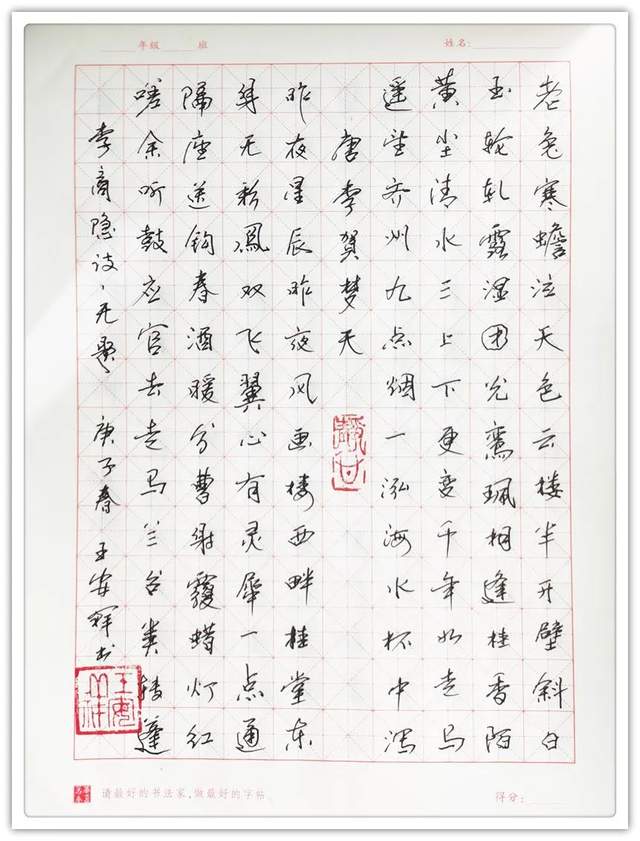 年级 班 姓名:
老兔寒蟾泣天色云楼半开壁斜白
玉轮轧露湿团光鸾珮相逢桂香陌
黄尘清水三山下更变千年如走马
遥望齐州九点烟一泓海水杯中泻
唐李贺梦天
昨夜星辰昨夜风画楼西畔桂堂东
身无彩凤双飞翼心有灵犀一点通
隔座送钩春酒暖分曹射覆蜡灯红
嗟余听鼓应官去走马兰台类转蓬
李商隐诗、无题、 庚子春 王安祥书
请最好的书法家,做最好的字帖
得分: